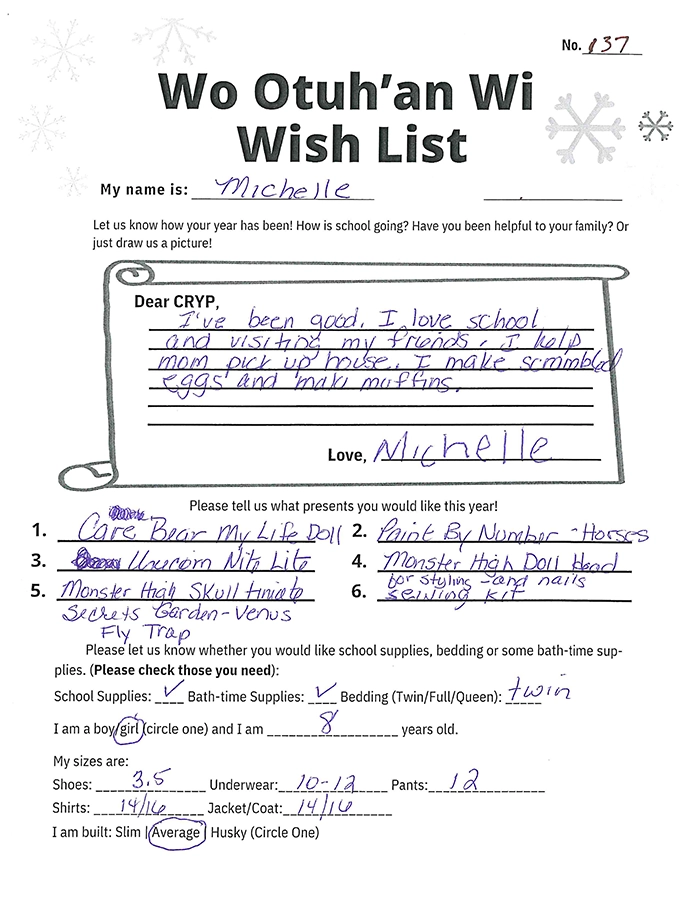 No. 137
Wo Otuh'an Wi
Wish List
My name is: Michelle
Let us know how your year has been! How is school going? Have you been helpful to your family? Or
just draw us a picture!
Dear CRYP,
I've been good. I love school
and visiting my friends. I help
mom pick up house. I make scrambled
eggs and make muffins.
Love, Michelle
Please tell us what presents you would like this year!
1. Care Bear My Life Doll 2. Paint By Number - Horses
3. Unicorn Nite Lite 4. Monster High Doll Head
for styling - and nails
5. Monster High Skulltimate 6. sewing kit
Secrets Garden - Venus
Fly Trap
Please let us know whether you would like school supplies, bedding or some bath-time sup-
plies. (Please check those you need):
School Supplies: ✓ Bath-time Supplies: ✓ Bedding (Twin/Full/Queen): twin
I am a boy/girl (circle one) and I am 8 years old.
My sizes are:
Shoes: 3.5 Underwear: 10-12 Pants: 12
Shirts: 14/16 Jacket/Coat: 14/16
I am built: Slim | Average | Husky (Circle One)